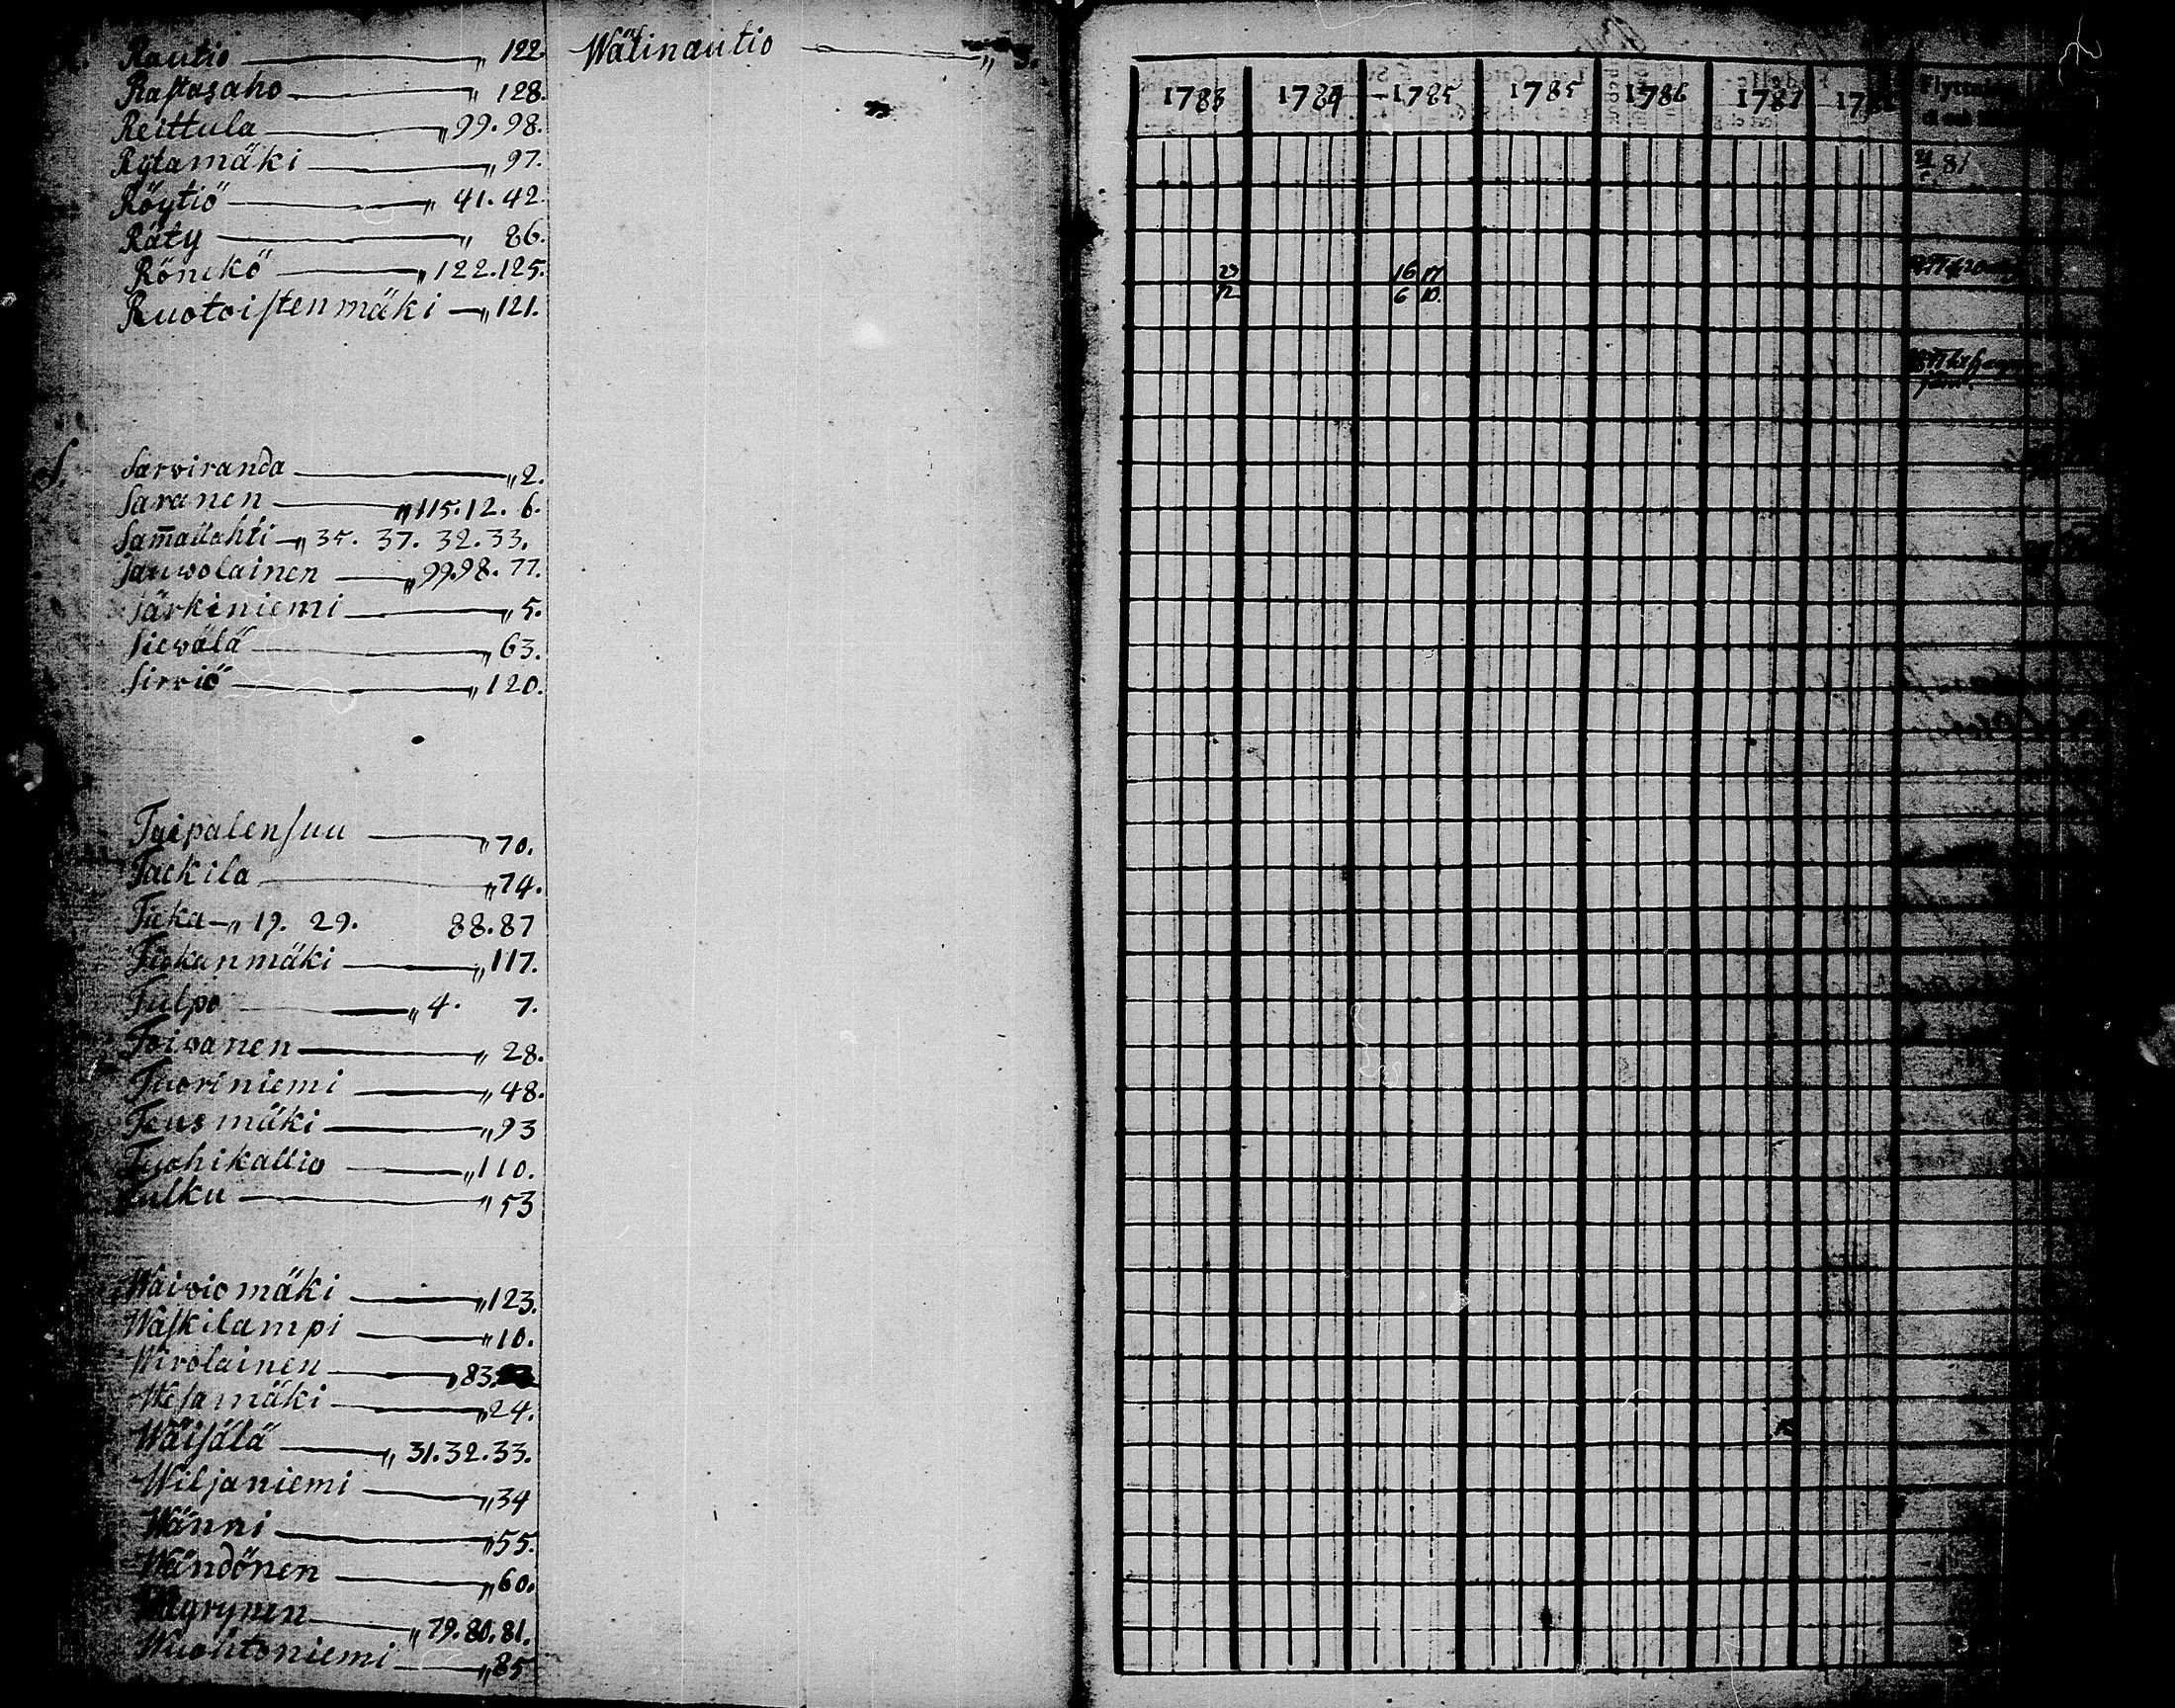 Rautio — „ 122.
Rastasaho — „ 128.
Reittula — „ 99. 98.
Rytamäki — „ 97.
Röytiö — „ 41. 42.
Räty — „ 86.
Rönckö — „ 122. 125.
Ruotoistenmäki — „ 121.
S.
Sarviranda — „ 2.
Saranen — „ 115. 12. 6.
Sam̅allahti — „ 35. 37. 32. 33.
Sauwolainen — „ 99. 98. 77.
Särkiniemi — „ 5.
Siewälä — „ 63.
Sirviö — „ 120.
Taipalensuu — „ 70.
Tackila — „ 74.
Ticka — „ 19. 29. 88. 87
Tickanmäki — „ 117.
Tulpo — „ 4. 7.
Toivanen — „ 28.
Tuoriniemi — „ 48.
Teusmäki — „ 93
Tuohikallio — „ 110.
Tulku — „ 53
Waiviomäki — „ 123.
Waskilampi — „ 10.
Wirolainen — „ 83.
Wesamäki — „ 24.
Wäisälä — „ 31. 32. 33.
Wiljaniemi — „ 34
Wänni — „ 55.
Wändönen — „ 60.
79. 80. 81.
Wuohtoniemi — „ 85
Wälinautio — „ 3.
1783 1784 1785 1785 1786 1787
81
23 16 17
12 6 10.